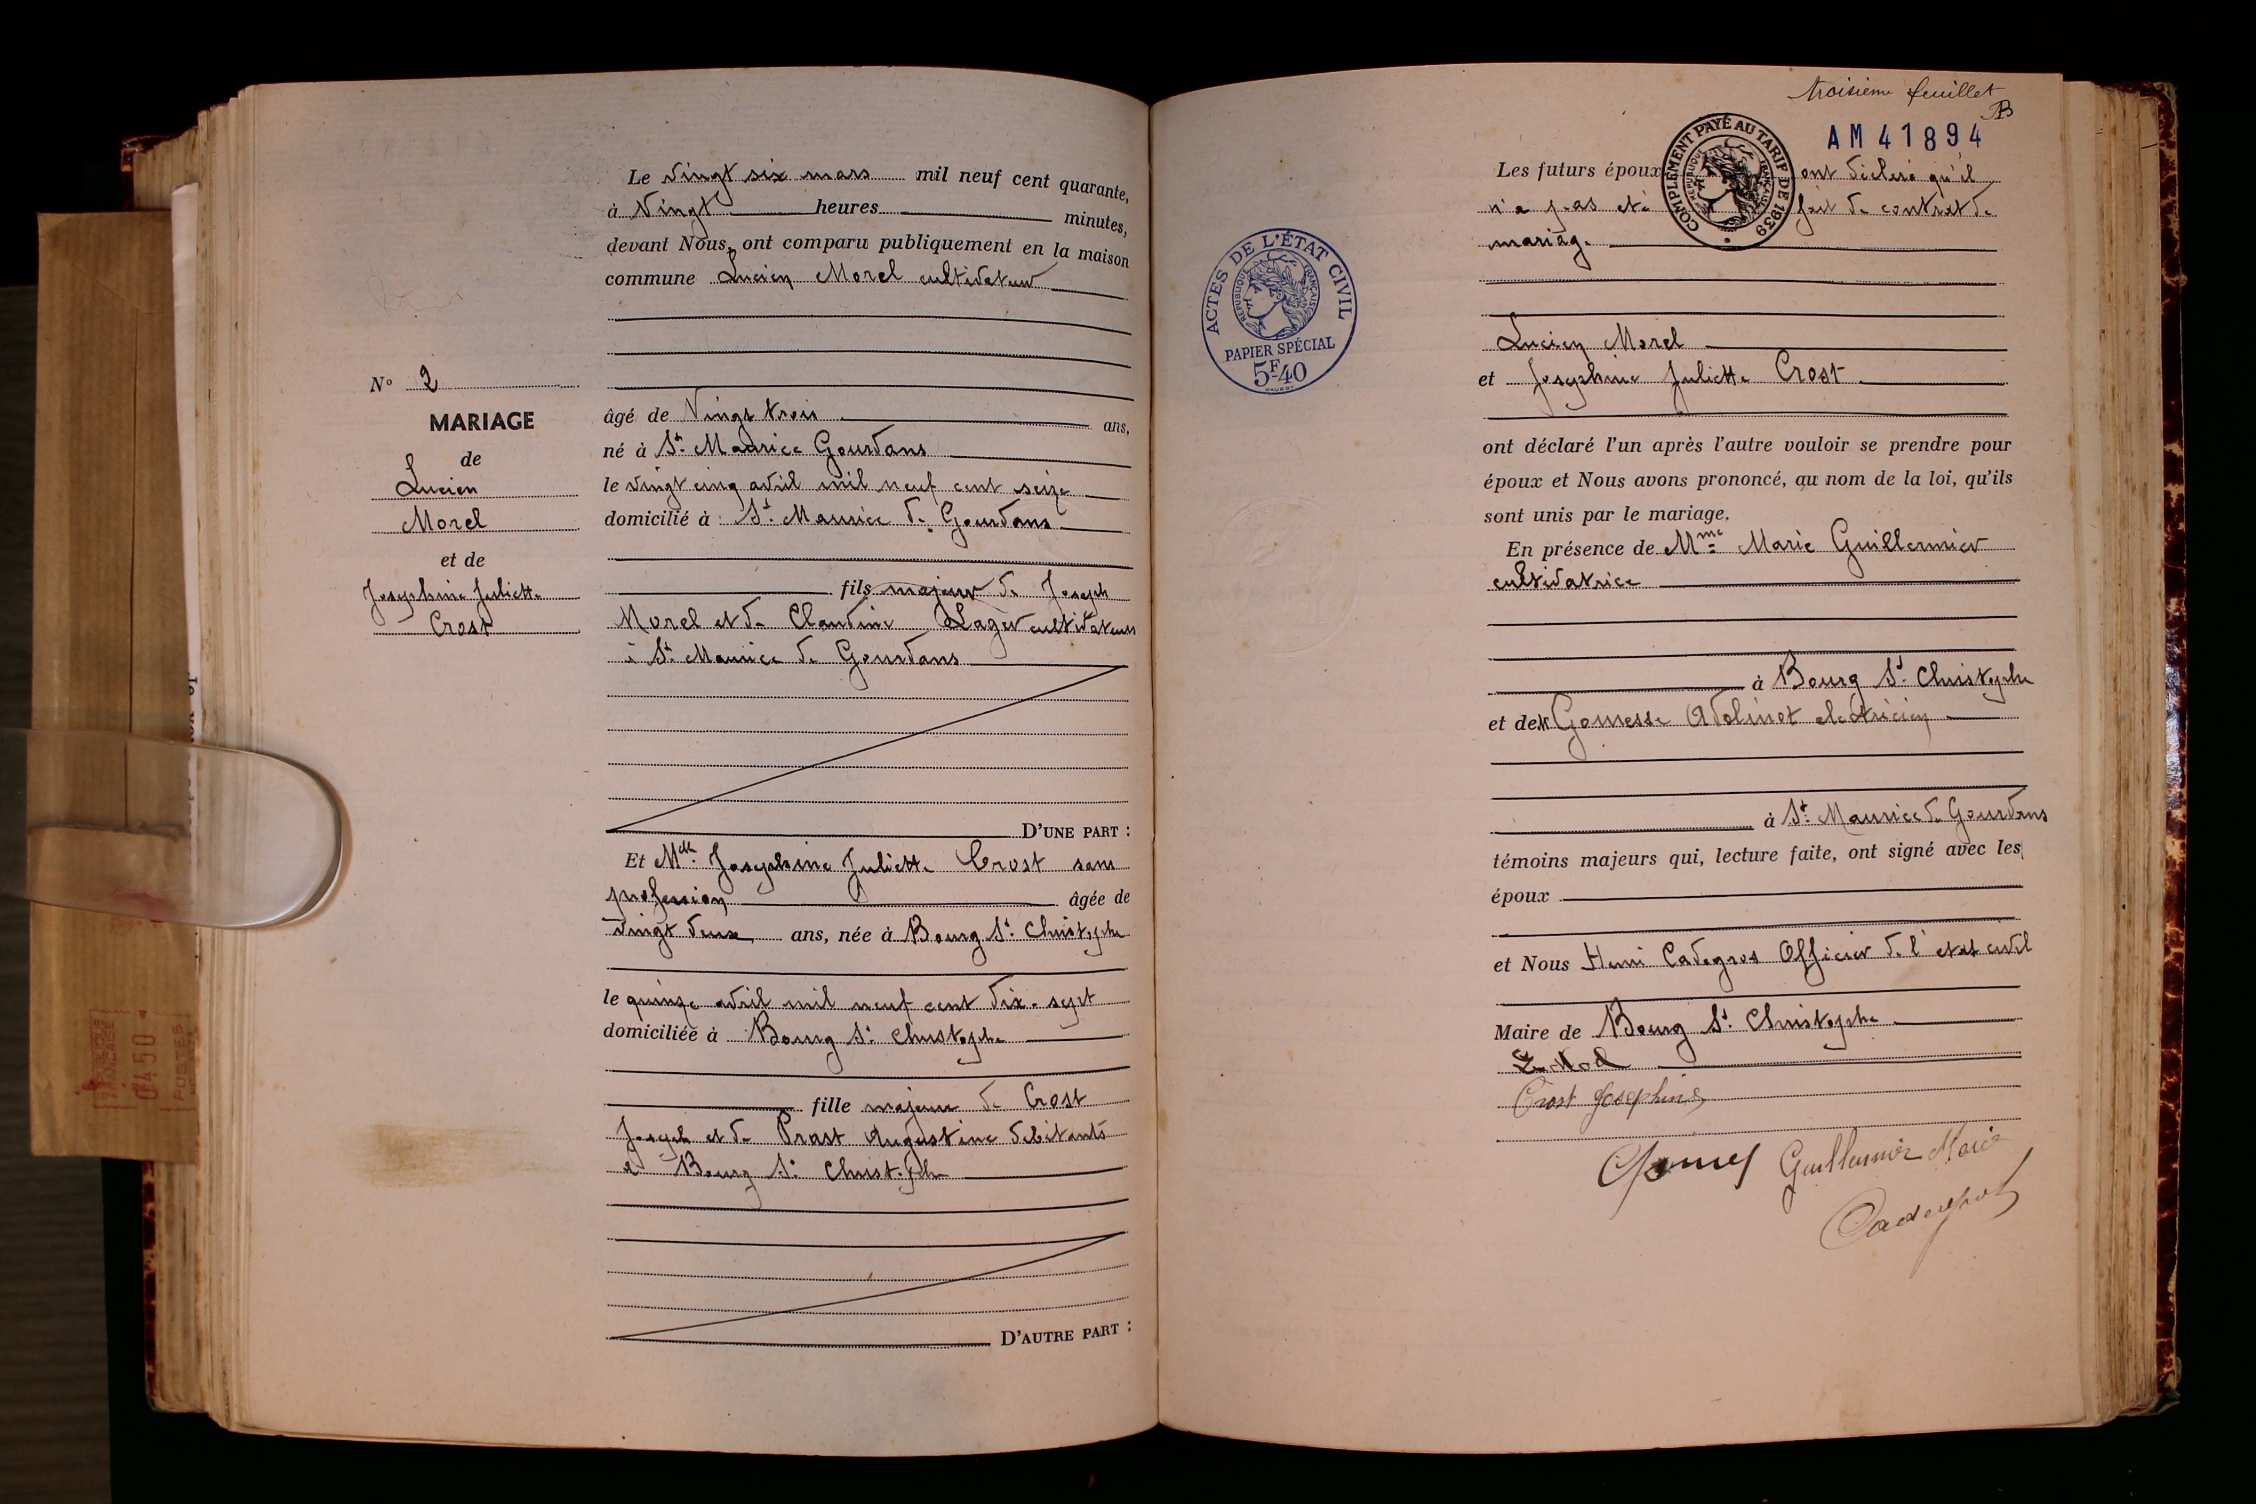 Le vingt six mars mil neuf cent quarante,
à Vingt heures minutes,
devant Nous, ont comparu publiquement en la maison
commune Lucien Morel cultivateur
N° 2
MARIAGE
de
Lucien
Morel
et de
Josephine Juliette
Crost
âgé de Vingt trois ans,
né à St Maurice Gourdans
le vingt cinq avril mil neuf cent seize
domicilié à St Maurice de Gourdans
fils majeur de Joseph
Morel et de Claudine Lager cultivateurs
à St Maurice de Gourdans
D'UNE PART :
Et Mlle Josephine Juliette Crost sans
profession âgée de
vingt deux ans, née à Bourg St Christophe
le quinze avril mil neuf cent dix-sept
domiciliée à Bourg St Christophe
fille majeure de Crost
Joseph et de Prost Augustine debitants
a Bourg St Christophe
D'AUTRE PART :
troisième feuillet
AM 41894
COMPLÉMENT PAYÉ AU TARIF DE 1939
RÉPUBLIQUE FRANÇAISE
ACTES DE L'ÉTAT CIVIL
RÉPUBLIQUE FRANÇAISE
PAPIER SPÉCIAL
5F40
Les futurs époux ont déclaré qu'il
n'a pas été fait de contrat de
mariage.
Lucien Morel
et Josephine Juliette Crost
ont déclaré l'un après l'autre vouloir se prendre pour
époux et Nous avons prononcé, au nom de la loi, qu'ils
sont unis par le mariage.
En présence de Mme Marie Guillermier
cultivatrice
à Bourg St Christophe
et de M Gomesse Adelinet electricien
à St Maurice de Gourdans
témoins majeurs qui, lecture faite, ont signé avec les
époux
et Nous Henri Cadegros Officier de l'etat civil
Maire de Bourg St Christophe
Crost Josephine
Guillermier Marie
0450
POSTES